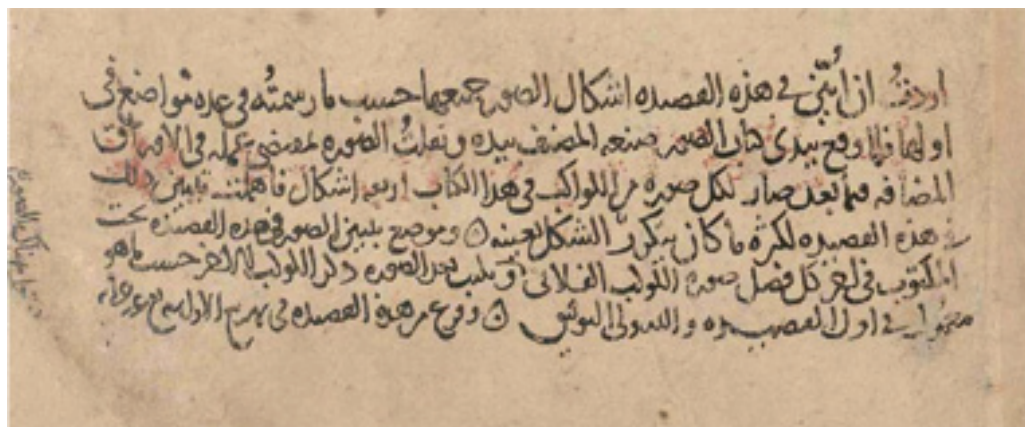 اردتُ ان اُبيّن في هذه القصيده اشكال الصور جميعها حسب ما رسمتُه في عده مواضع في
اولها فلما وقع بيدي كتاب الصور صنعه المصنف بيده ونقلتُ الصوره بمقتضى عمله في الاوراق
المضافه فيما بعد صار لكل صوره من الكواكب في هذا الكتاب اربعه اشكال فاهملت تبيين ذلك
في هذه القصيده لكثره ما كان يتكرر الشكل بعينه ه وموضع تبيين الصور في هذه القصيده تحت
المكتوب في اخر كل فصل صوره الكواكب الفلاني او يكتب بعد الصوره ذكر الكواكب الى الاخر حسب ما هو
في اول القصيده والله ولي التوفيق ه وفرغ من هذه القصيده في ربيع الاول سنه